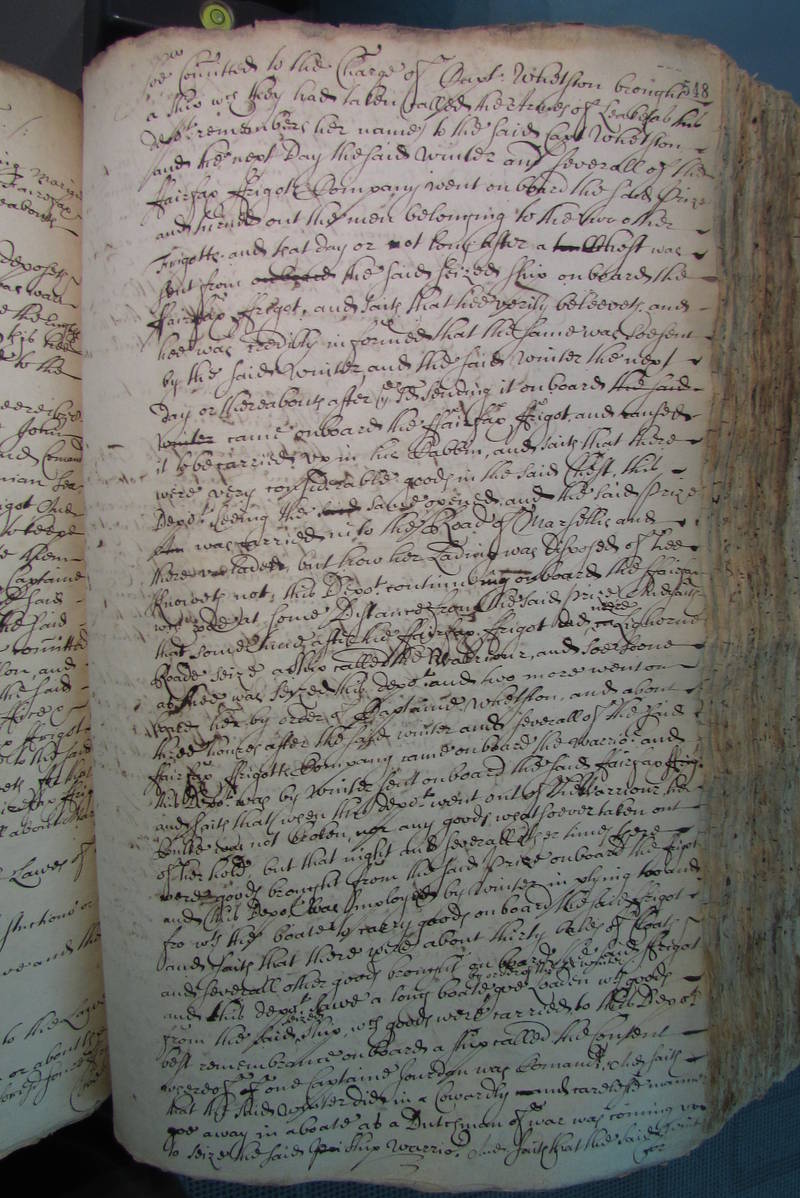 548
soe Comitted to the Charge of Capt: Whetston brought
a ship wch they had taken called the Armes of this
depot: remembers her name) to the said Capt Whetston
and the next Day the said Winter and severall of the
ffairfax ffrigots Company went on board the said Prize
and turned out the men belonging to the two other
Frigotts and that day or not long after a Chest was
sent from the said seized ship on board the
ffairfax ffrigot, and saith that hee verily beleeveth and
hee was credibly informed that the same was soe sent
by the said Winter, and the said Winter the next
Day or thereabouts after the sending it on board
came onboard the ffairfax ffrigot, and caused
it to be carried up in his Cabbin, and saith that there
were very considerable goods in the said Chest, this
Depot: seeing the same opened, and the said Prize
was carried into the Road of Marsellis and
there unladen, but how her Lading was Disposed of hee
knoweth not, this Depot continueing onboard the ffairfax
wch rode at some Distance from the said Prize And saith
that some time after the ffairfax ffrigot did neere Leighorne
Roade seize a ship called the Warriour, and soe soone
as shee was seized this depot: and two more went on
board her by order of Captaine Whetston, and about
three houres after the said Winter and severall of the said
ffairfax ffrigotts Company came on board the Warrior and
this Depot: was by Winter sent on board the said ffairfax ffrigt
and saith that when this depot went out of the Warriour her
bulke was not broken, nor any goods whatsoever taken out
of her hold, but that night and severall other times there
were goods brought from the said Prize on board the frigot
and this Depot: was imployed by Winter in plying too and
fro wth the boate to carry goods on board the said ffrigot
and saith that there were about thirty bales of
and severall other goods brought on board the said ffrigot
and this depot: sawe a long boate Loaden wth goods
from the said seized ship, wch goods were carried to this Depots
best remembrance on board a ship called the
whereof one Captaine Jourdon was Comandr, And saith
that the said Winter did in a Cowardly and carelesse manner
goe away in a boate as a Dutchman of war was coming up
to seize the said ship Warrior. And saith that the said
for